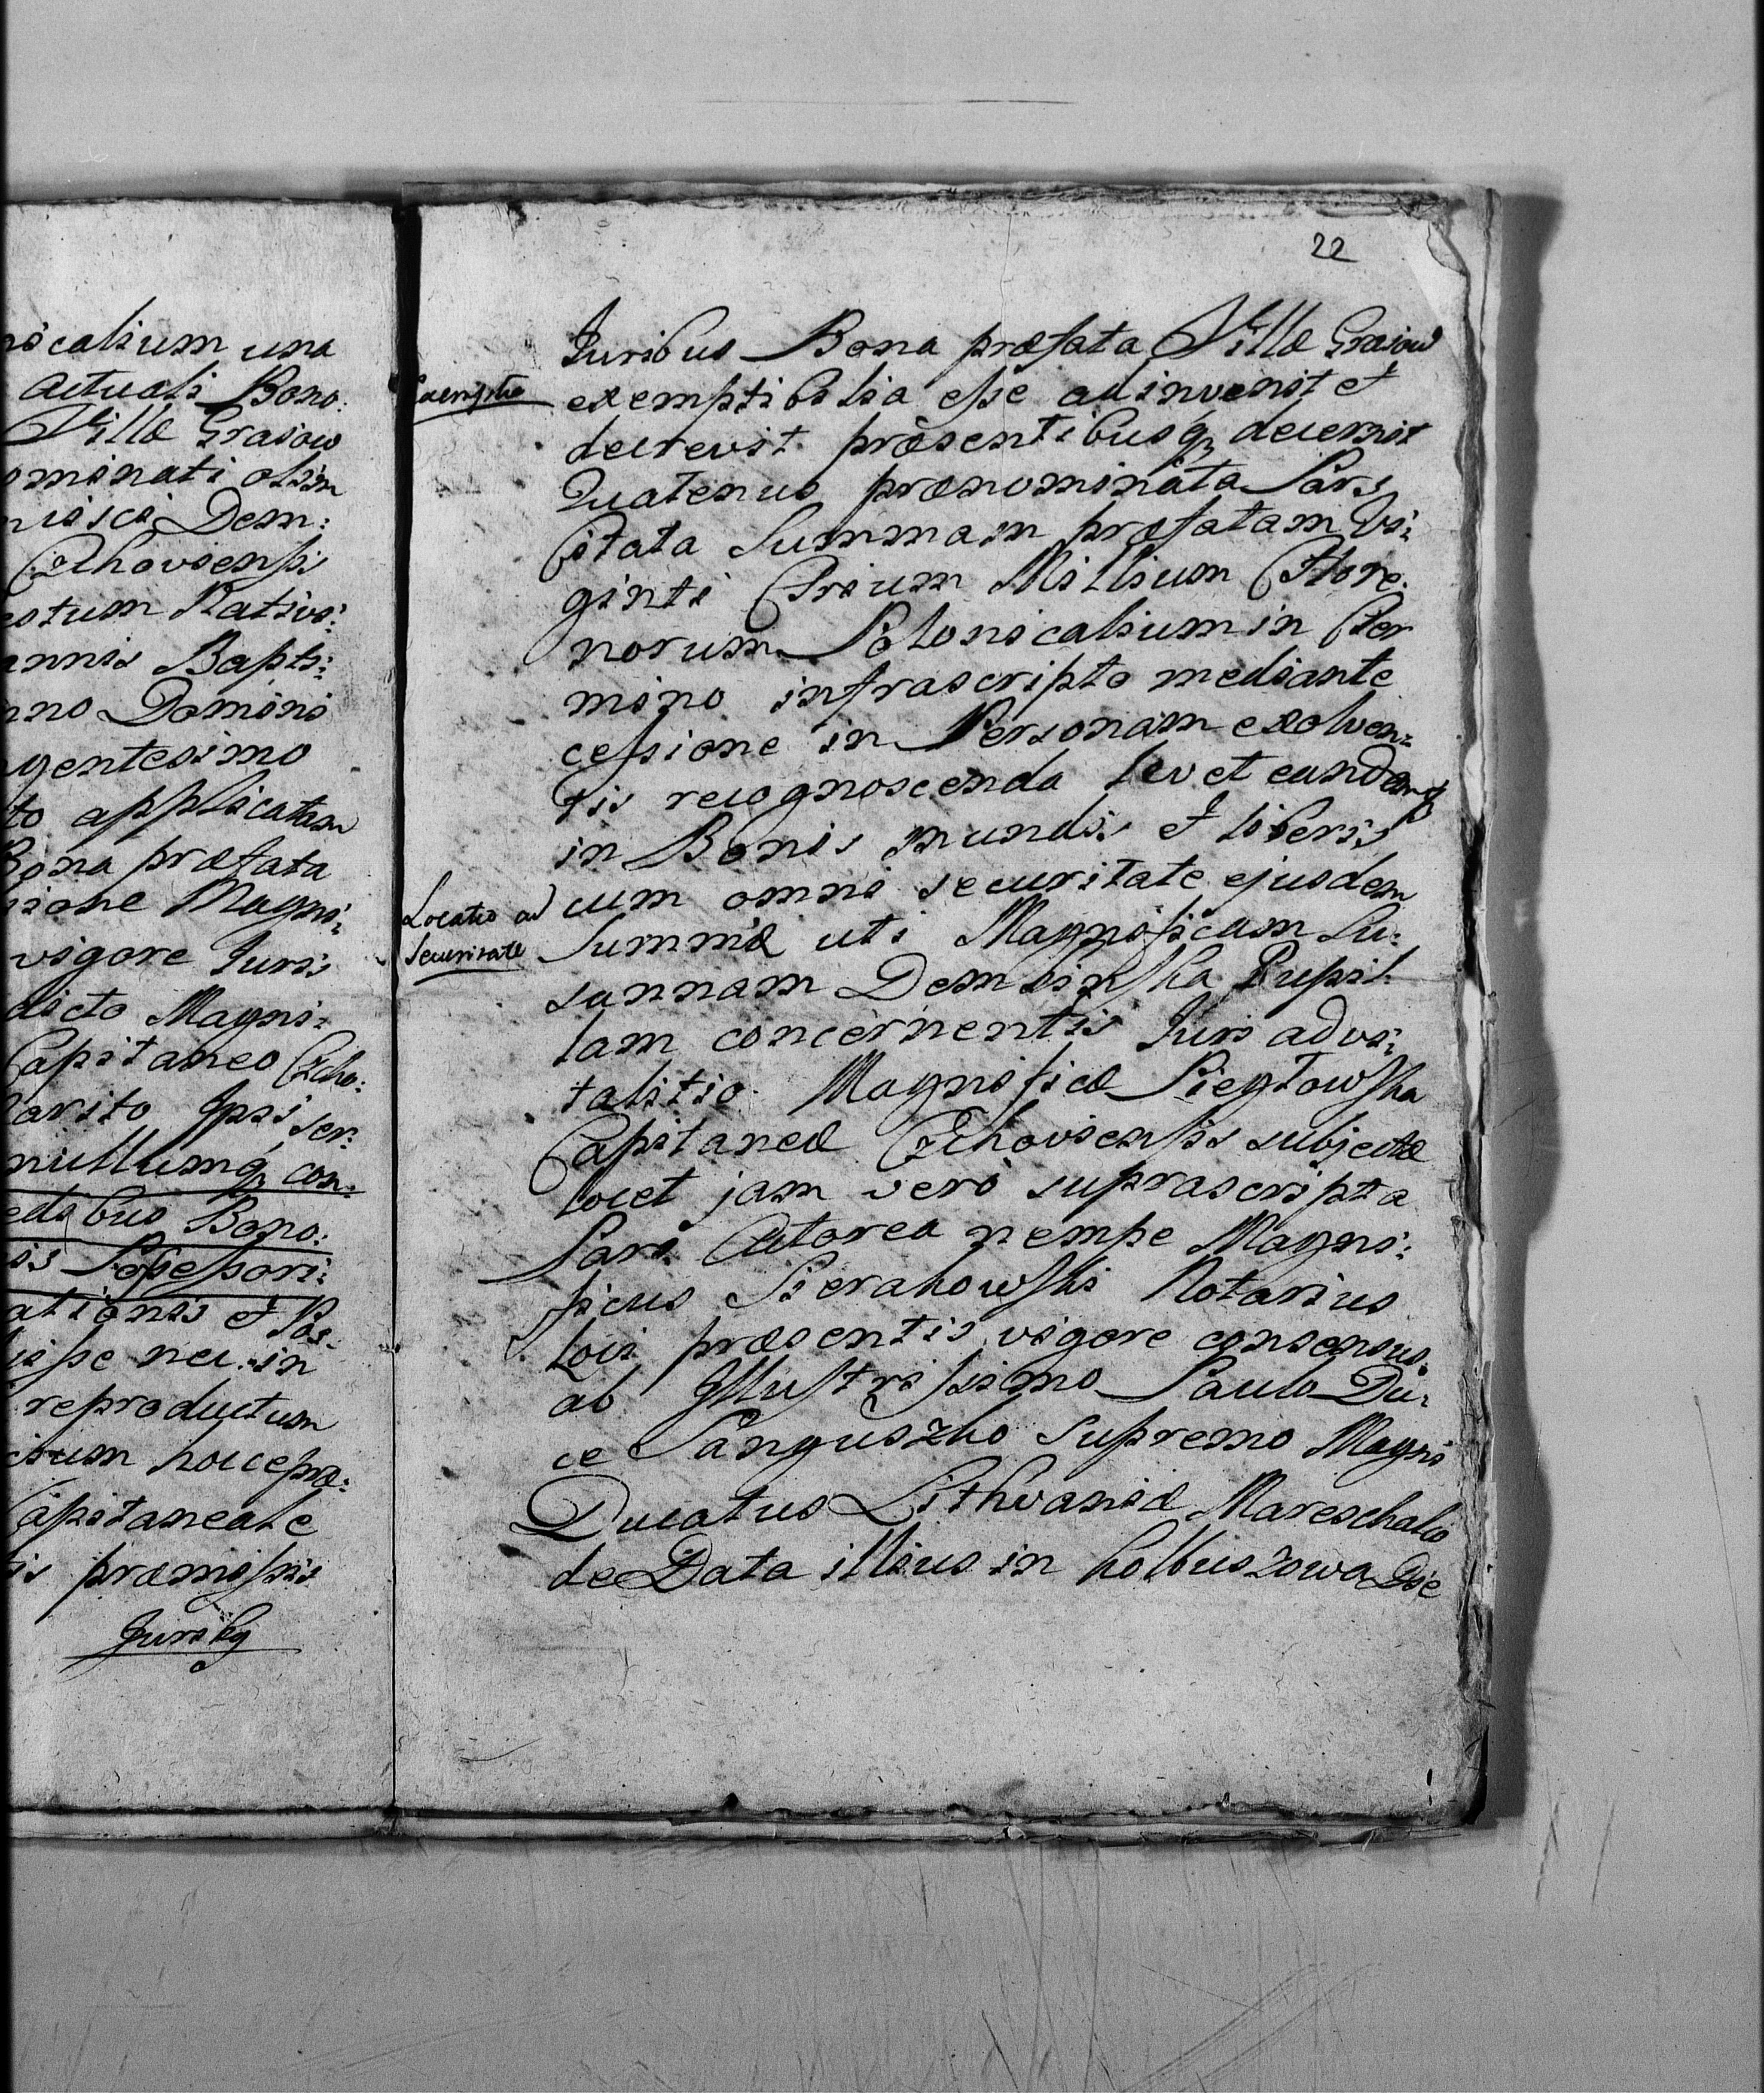 nicalium una
actuali Bono:
Villæ Grasow
ominati olim
Dem:
Czchoviensi
Rativi:
annis Bapti:
nno Domini
gentesimo
to applicatam
Bona præfata
sione Magni:
vigore Juris
dicto Magni:
Capitaneo Czcho:
Marito Ipsi ser:
nullumq con:
edibus Bono:
is Possessori:
ationis et Pos:
isse nec in
reproductum
hocce præ:
Capitaneale
is præmissis
Jursky
22
Juribus Bona præfata Villæ Grasow
Exemptio
exemptibilia esse adinvenit et
decrevit præsentibusq decernit
Quatenus prænominata Pars
Citata Summam præfatam Vi:
ginti Trium Millium Flore:
norum Polonicalium in Ter
mino infrascripto mediante
cessione in Personam exolven:
tis recognoscenda levet eandemq
in Bonis mundis et liberis
Locatio ad
cum omni securitate ejusdem
Securitate
Summæ uti Magnificam Su:
sannam Dembinska Pupil:
lam concernentis Juri advi:
talitio Magnificæ Piegłowska
Capitaneæ Czchoviensis subjectæ
locet jam vero suprascripta
Pars Actorea nempe Magni:
ficus Sierakowski Notarius
loci præsentis vigore consensus
ab Illustrissimo Paulo Du:
ce Sanguszko Supremo Magni
Ducatus Lithvaniæ Mareschalco
de Data illius in Kolbuszowa Die